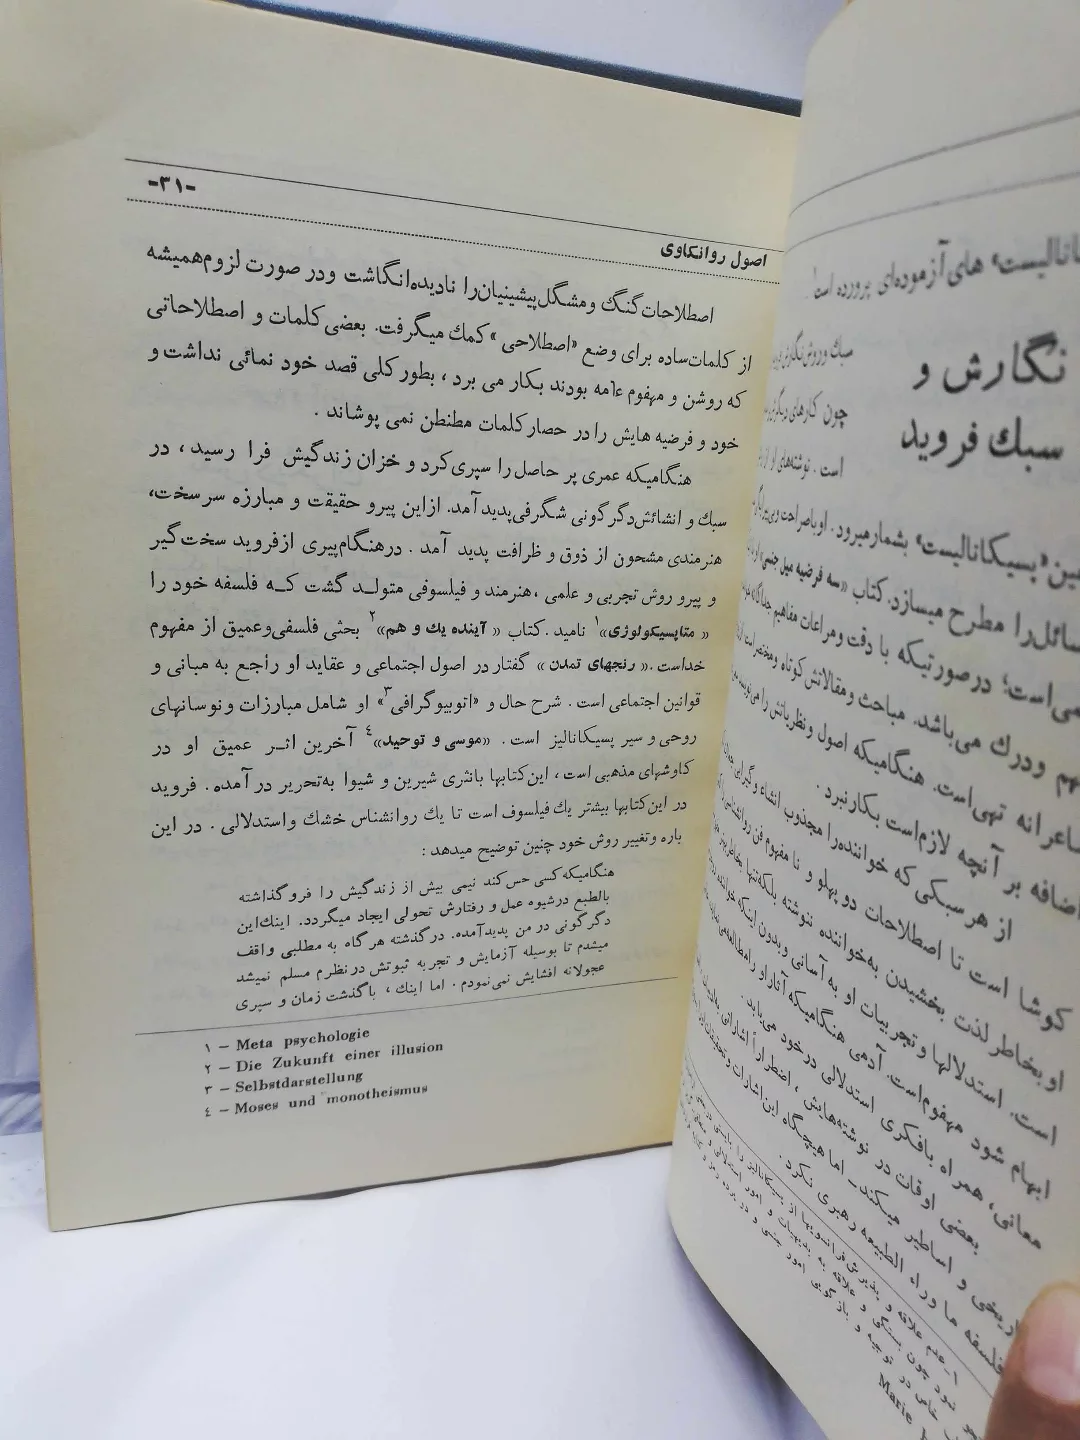 انالیست» های آزموده‌ای پرورده است!
نگارش و
سبك فروید
سبك وروش نگارش
چون کارهای دیگر
است . نوشته‌های او از
ین «پسیکانالیست» بشمار میرود. او باصراحت
سائل را مطرح میسازد. کتاب «سه فرضیه میل جنسی»
می است؛ درصورتیکه با دقت ومراعات مفاهیم جداگانه
هم ودرك می‌باشد. مباحث ومقالاتش کوتاه ومختصر است
اعرانه تهی است. هنگامیکه اصول ونظریاتش را می‌نویسد
اضافه بر آنچه لازم است بکار نبرد .
از هر سبکی که خواننده را مجذوب انشاء وگیرایی
کوشا است تا اصطلاحات دو پهلو و نا مفهوم فن روانشناسی را
او بخاطر لذت بخشیدن به خواننده ننوشته بلکه تنها بخاطر
است. استدلالها و تجربیات او به آسانی وبدون اینکه خواننده
ابهام شود مفهوم است. آدمی هنگامیکه آثار او را مطالعه می
معانی، همراه بافکری استدلالی درخود می‌یابد .
بعضی اوقات در نوشته‌هایش ، اضطراراً اشاراتی به
اریخی و اساطیر میکند – اما هیچگاه این اشارات و
فلسفه ما وراء الطبیعه رهبری نکرد.
۱ – عدم علاقه و پذیرش فرانسویها از پسیکانالیز را بایستی در
نمود چون بستگی و علاقه به بدیهیات و امور استدلالی و
خاص در توجیه و بازگویی امور جنسی و در پرده رمز و
Marie
-۳۱-
اصول روانکاوی
اصطلاحات گنگ و مشگل پیشینیان را نادیده انگاشت ودر صورت لزوم همیشه
از کلمات ساده برای وضع «اصطلاحی» کمك میگرفت. بعضی کلمات و اصطلاحاتی
که روشن و مهفوم عامه بودند بکار می برد ، بطور کلی قصد خود نمائی نداشت و
خود و فرضیه هایش را در حصار کلمات مطنطن نمی پوشاند .
هنگامیکه عمری پر حاصل را سپری کرد و خزان زندگیش فرا رسید ، در
سبك و انشائش دگرگونی شگرفی پدید آمد. ازاین پیرو حقیقت و مبارزه سرسخت،
هنرمندی مشحون از ذوق و ظرافت پدید آمد . درهنگام پیری ازفروید سخت گیر
و پیرو روش تجربی و علمی ، هنرمند و فیلسوفی متولد گشت که فلسفه خود را
« متاپسیکولوژی»۱ نامید . کتاب « آینده یك و هم»۲ بحثی فلسفی وعمیق از مفهوم
خداست . « رنجهای تمدن » گفتار در اصول اجتماعی و عقاید او راجع به مبانی و
قوانین اجتماعی است . شرح حال و «اتوبیوگرافی۳» او شامل مبارزات ونوسانهای
روحی و سیر پسیکانالیز است . «موسی و توحید»۴ آخرین اثر عمیق او در
کاوشهای مذهبی است ، این کتابها بانثری شیرین و شیوا به‌تحریر در آمده . فروید
در این کتابها بیشتر یك فیلسوف است تا یك روانشناس خشك واستدلالی . در این
باره وتغییر روش خود چنین توضیح میدهد :
هنگامیکه کسی حس کند نیمی بیش از زندگیش را فروگذاشته
بالطبع درشیوه عمل و رفتارش تحولی ایجاد میگردد. اینك این
دگرگونی در من پدید آمده. درگذشته هرگاه به مطلبی واقف
میشدم تا بوسیله آزمایش و تجربه ثبوتش در نظرم مسلم نمیشد
عجولانه افشایش نمی نمودم . اما اینك ، باگذشت زمان و سپری
۱ – Meta psychologie
۲ – Die Zukunft einer illusion
۳ – Selbstdarstellung
٤ – Moses und monotheismus